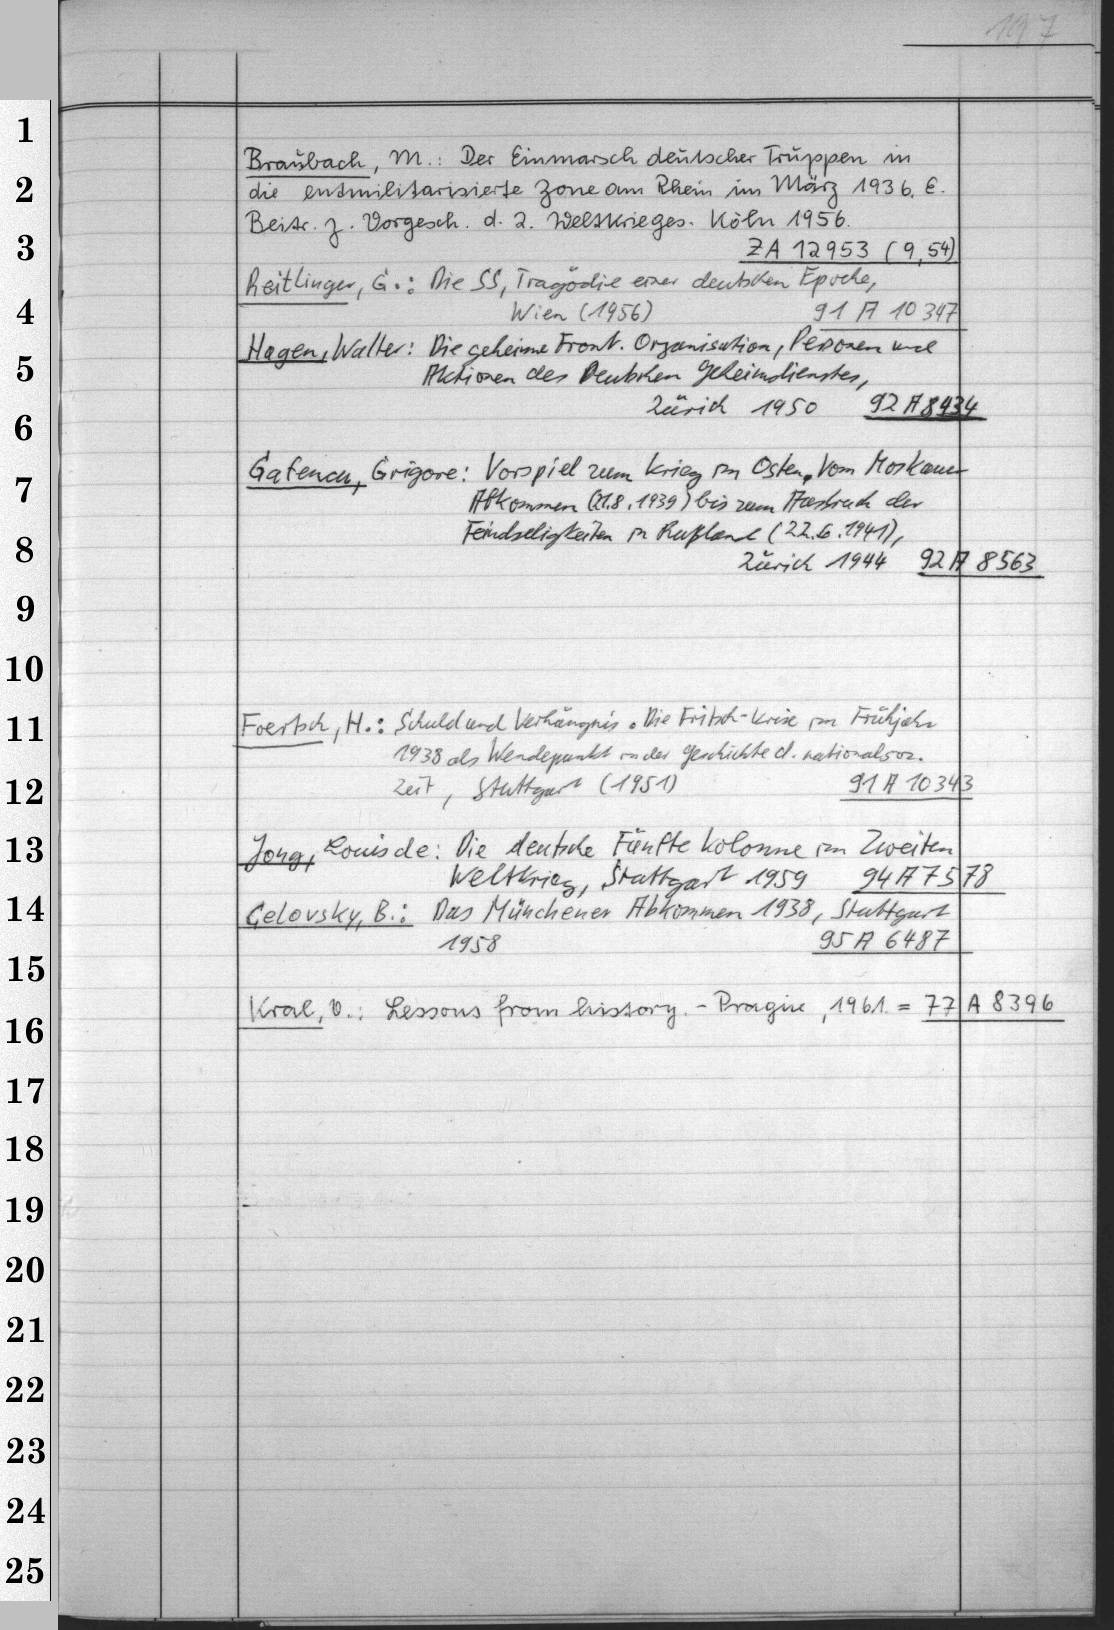 197
1
Braubach, M.: Der Einmarsch deutscher Truppen in
2
die entmilitarisierte Zone am Rhein im März 1936. E.
Beitr. z. Vorgesch. d. 2. Weltkrieges. Köln 1956.
3
ZA 12953 (9,54)
Reitlinger, G.: Die SS, Tragödie einer deutschen Epoche,
4
Wien (1956) 91 A 10347
Hagen, Walter: Die geheime Front. Organisation, Personen und
5
Aktionen des Deutschen Geheimdienstes,
Zürich 1950 92 A 8434
6
Gafencu, Grigore: Vorspiel zum Krieg im Osten. Vom Moskauer
7
Abkommen (21.8.1939) bis zum Ausbruch der
Feindseligkeiten in Rußland (22.6.1941),
8
Zürich 1944 92 A 8563
9
10
Foertsch, H.: Schuld und Verhängnis. Die Fritsch-Krise im Frühjahr
11
1938 als Wendepunkt in der Geschichte d. nationalsoz.
12
Zeit, Stuttgart (1951) 91 A 10343
13
Jong, Louis de: Die deutsche Fünfte Kolonne im Zweiten
Weltkrieg, Stuttgart 1959 94 A 7578
14
Celovsky, B.: Das Münchener Abkommen 1938, Stuttgart
1958 95 A 6487
15
Kral, V.: Lessons from history. - Prague, 1961. = 77 A 8396
16
17
18
19
20
21
22
23
24
25